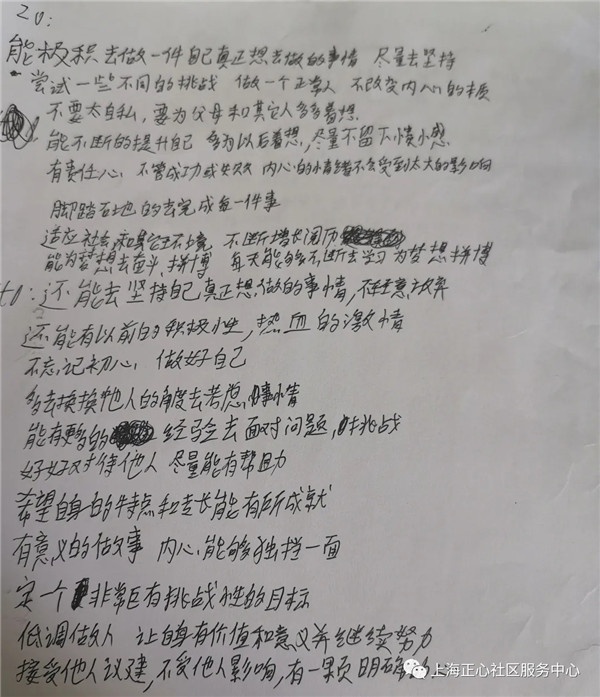 20:
能极积去做一件自己真正想去做的事情 尽量去坚持
尝试一些不同的挑战 做一个正常人 不改变内心的本质
不要太自私，要为父母和其它人多多着想.
能不断的提升自己 多为以后着想，尽量不留下小遗憾
有责任心 不管成功或失败 内心的情绪不会受到太大的影响
脚踏石地的去完成每一件事
适应社会和其它环境 不断增长阅历
能为梦想去奋斗、拼搏 每天能够不断去学习 为梦想拼搏
40:还能去坚持自己真正想做的事情，不任意放弃
还能有以前的积极性，热血的激情
不忘记初心 做好自己
多去换换他人的角度去考虑 事情
能有更多的 经验去面对问题，挑战
好好对待他人 尽量能有帮助
希望自身的特点和专长能有所成就
有意义的做事 内心能够独挡一面
定个 非常具有挑战性的目标
低调做人 让自身有价值和意义并继续努力
接受他人议建，不受他人影响，有一颗明确 上
上海正心社区服务中心